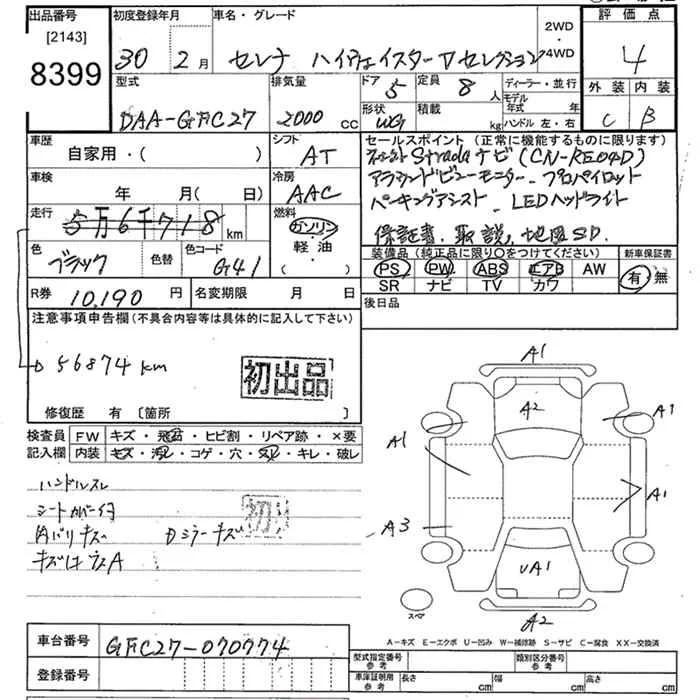 出品番号 初度登録年月 車名・グレード 2WD・4WD 評価点
[2143]
8399 30年 2月 セレナ ハイウェイスターVセレクション 4
型式 排気量 ドア 5 定員 8人 ディーラー・並行 外装 内装
DAA-GFC27 2000cc 形状 WG 積載 kg モデル年式 年 ハンドル 左・右 C B
車歴 シフト セールスポイント (正常に機能するものに限ります)
自家用・( ) AT Stradaナビ(CN-RE04D)
車検 冷房 アラウンドビューモニター プロパイロット
年 月( 日) AAC パーキングアシスト LEDヘッドライト
走行 5万6千718km 燃料 ガソリン 保証書、取説、地図SD.
軽油
・( )
色 色替 色コード 装備品(純正品に限り○をつけてください) 新車保証書
ブラック G41 PS PW ABS エアB AW 有・無
SR ナビ TV カワ
R券 10,190円 名変期限 月 日 後日品
注意事項申告欄(不具合内容等は具体的に記入して下さい)
56874km
初出品
修復歴 有 〔箇所 〕
検査員 FW キズ・飛石・ヒビ割・リペア跡・×要
記入欄 内装 キズ・汚レ・コゲ・穴・スレ・キレ・破レ
ハンドルスレ
シートカバー付
内バリキズ Dミラーキズ
キズ ウスA
初
A1
A2
A1
A1
A1
A3
UA1
スペア
A2
A-キズ E-エクボ U-凹み W-補修跡 S-サビ C-腐食 XX-交換済
車台番号 GFC27-070774
登録番号
型式指定番号 参考 類別区分番号 参考
車庫証明用 参考 長さ cm 幅 cm 高さ cm